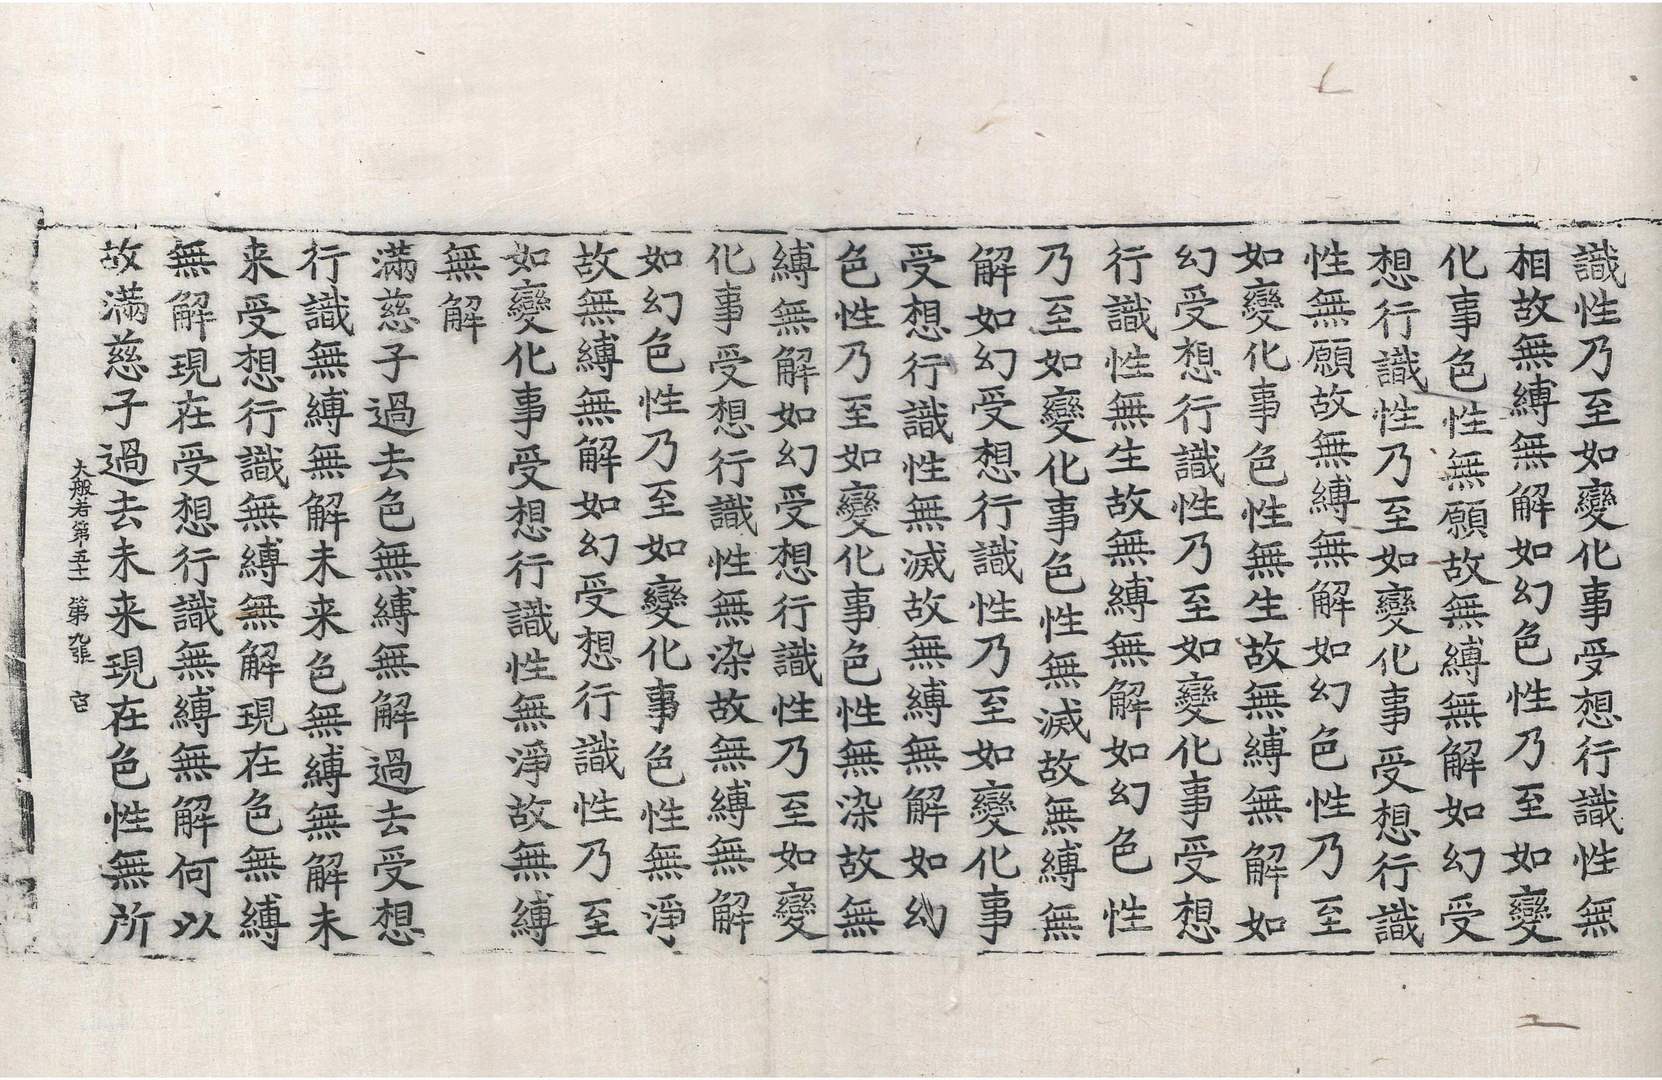 識性乃至如變化事受想行識性無
相故無縛無解如幻色性乃至如變
化事色性無願故無縛無解如幻受
想行識性乃至如變化事受想行識
性無願故無縛無解如幻色性乃至
如變化事色性無生故無縛無解如
幻受想行識性乃至如變化事受想
行識性無生故無縛無解如幻色性
乃至如變化事色性無滅故無縛無
解如幻受想行識性乃至如變化事
受想行識性無滅故無縛無解如幻
色性乃至如變化事色性無染故無
縛無解如幻受想行識性乃至如變
化事受想行識性無染故無縛無解
如幻色性乃至如變化事色性無淨
故無縛無解如幻受想行識性乃至
如變化事受想行識性無淨故無縛
無解
滿慈子過去色無縛無解過去受想
行識無縛無解未来色無縛無解未
来受想行識無縛無解現在色無縛
無解現在受想行識無縛無解何以
故滿慈子過去未来現在色性無所
大般若第五十一 第九張 宙